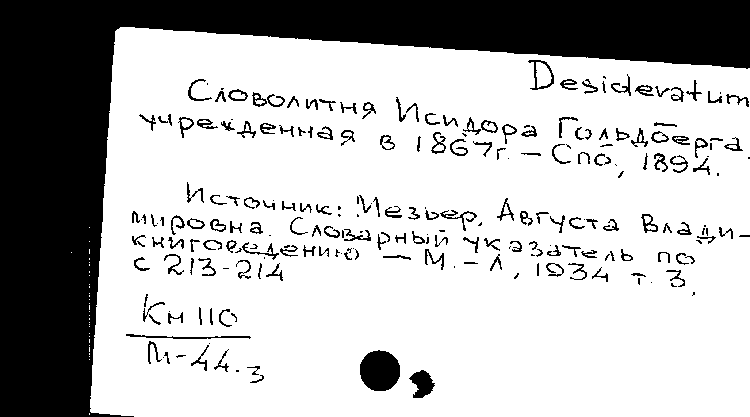 Desideratum
Словолитня Исидора Гольдберга,
учрежденная в 1867г. – Спб, 1894.
Источник: Мезьер, Августа Влади-
мировна. Словарный указатель по
книговедению – М.-Л, 1934 т. 3.
с 213-214
Кн 110
М-44.3